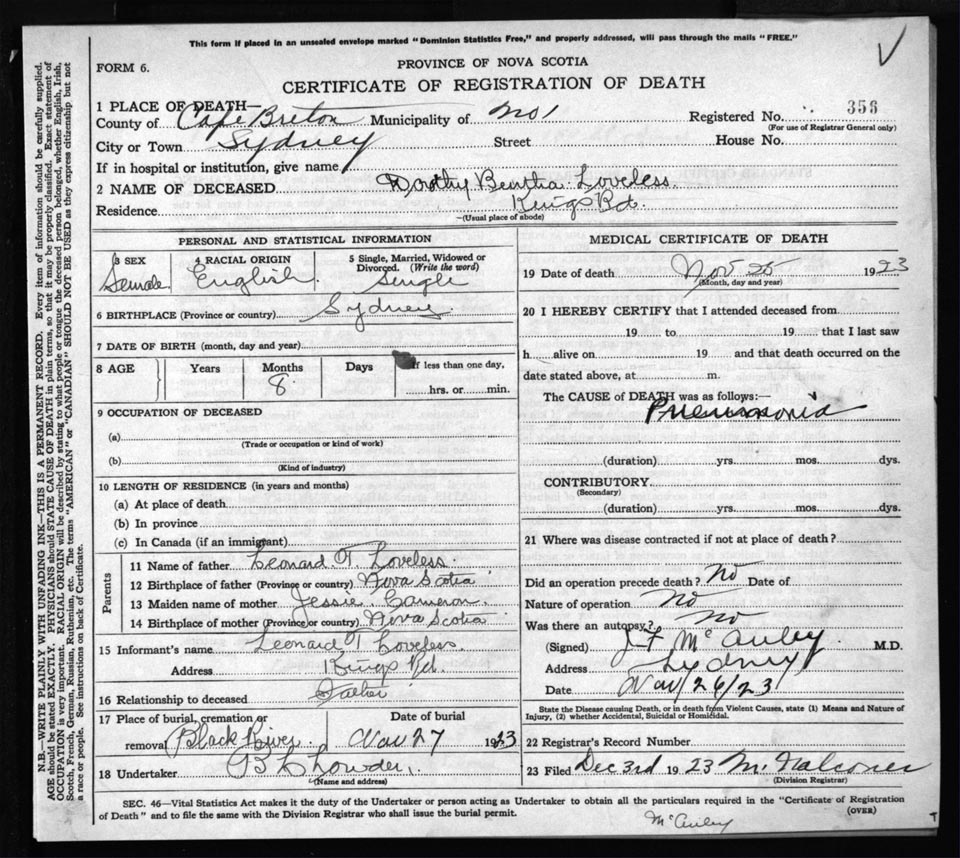 This form if placed in an unsealed envelope marked "Dominion Statistics Free," and properly addressed, will pass through the mails "FREE."
FORM 6.
PROVINCE OF NOVA SCOTIA
CERTIFICATE OF REGISTRATION OF DEATH
1 PLACE OF DEATH—
County of Cape Breton Municipality of No 1 Registered No. 356
(For use of Registrar General only)
City or Town Sydney Street House No.
If in hospital or institution, give name
2 NAME OF DECEASED Dorothy Bertha Loveless.
Residence Kings Rd.
(Usual place of abode)
PERSONAL AND STATISTICAL INFORMATION
3 SEX 4 RACIAL ORIGIN 5 Single, Married, Widowed or Divorced. (Write the word)
Female English Single
6 BIRTHPLACE (Province or country) Sydney.
7 DATE OF BIRTH (month, day and year)
8 AGE Years Months Days If less than one day,
8 hrs. or min.
9 OCCUPATION OF DECEASED
(a)
(Trade or occupation or kind of work)
(b)
(Kind of industry)
10 LENGTH OF RESIDENCE (in years and months)
(a) At place of death
(b) In province
(c) In Canada (if an immigrant)
Parents
11 Name of father Leonard T. Loveless.
12 Birthplace of father (Province or country) Nova Scotia
13 Maiden name of mother Jessie Cameron.
14 Birthplace of mother (Province or country) Nova Scotia
15 Informant's name Leonard T Loveless.
Address Kings Rd.
16 Relationship to deceased Father
17 Place of burial, cremation or removal Black River Date of burial Nov 27 1923
18 Undertaker
(Name and address)
MEDICAL CERTIFICATE OF DEATH
19 Date of death Nov 25 1923
(Month, day and year)
20 I HEREBY CERTIFY that I attended deceased from
19 to 19 that I last saw
h alive on 19 and that death occurred on the
date stated above, at m.
The CAUSE of DEATH was as follows:—
Pneumonia
(duration) yrs. mos. dys.
CONTRIBUTORY
(Secondary)
(duration) yrs. mos. dys.
21 Where was disease contracted if not at place of death?
Did an operation precede death? No Date of
Nature of operation No
Was there an autopsy? No
(Signed) McAuley M.D.
Address Sydney
Date Nov/26/23
State the Disease causing Death, or in death from Violent Causes, state (1) Means and Nature of
Injury, (2) whether Accidental, Suicidal or Homicidal.
22 Registrar's Record Number
23 Filed Dec 3rd 1923
(Division Registrar)
SEC. 46—Vital Statistics Act makes it the duty of the Undertaker or person acting as Undertaker to obtain all the particulars required in the "Certificate of Registration
of Death" and to file the same with the Division Registrar who shall issue the burial permit.
(OVER)
McAuley
N.B.—WRITE PLAINLY WITH UNFADING INK—THIS IS A PERMANENT RECORD. Every item of information should be carefully supplied.
AGE should be stated EXACTLY. PHYSICIANS should STATE CAUSE OF DEATH in plain terms, so that it may be properly classified. Exact statement of
OCCUPATION is very important. RACIAL ORIGIN will be described by stating to what people or tongue the deceased person belonged, whether English, Irish,
Scotch, French, German, Russian, Ruthenian, etc. The terms "AMERICAN" or "CANADIAN" SHOULD NOT BE USED as they express citizenship but not
a race or people. See instructions on back of Certificate.